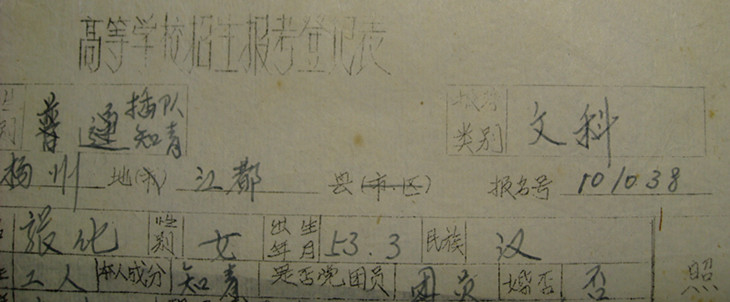 高等学校招生报考登记表
别 普通 插队知青 类别 文科
扬州 地(市) 江都 县(市.区) 报名号 101038
张化 性别 女 出生年月 53.3 民族 汉
工人 本人成分 知青 是否党团员 团员 婚否 否 照